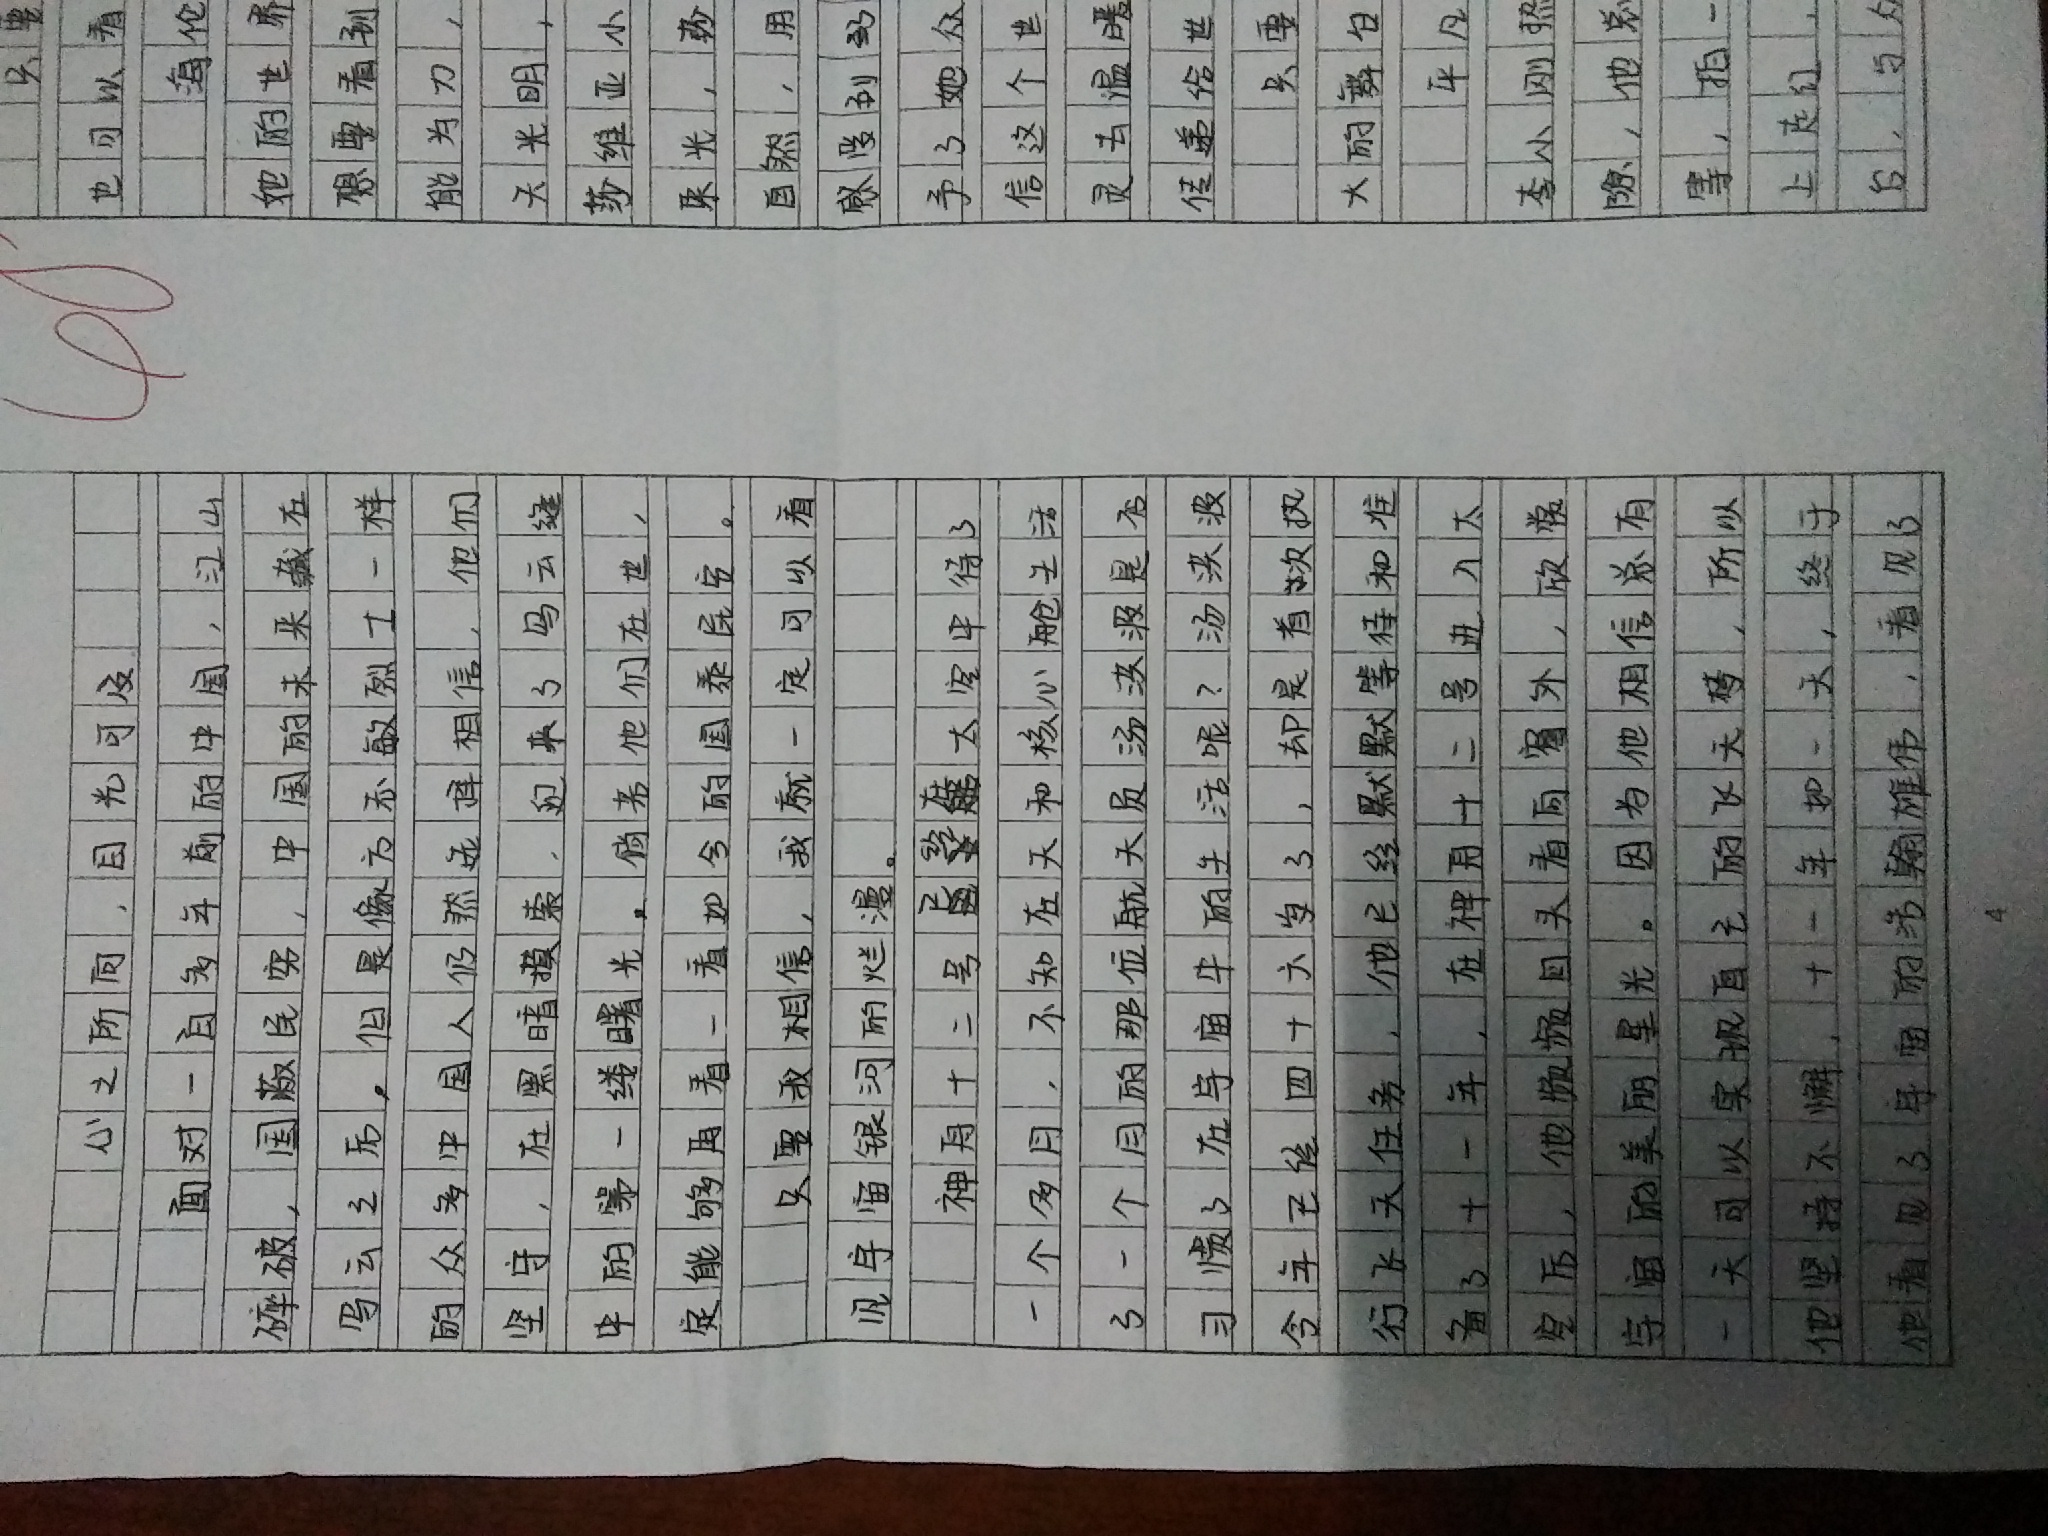 心之所向，目光可及
面对一百多年前的中国，江山
碎破，国蔽民穷，中国的未来藏在
乌云之后。但是像方志敏烈士一样
的众多中国人仍然选择相信，他们
坚守，在黑暗摸索，迎来了乌云缝
中的第一缕曙光。倘若他们在世，
定能够再看一看如今的国泰民安。
只要我相信，我就一定可以看
见宇宙银河的烂漫。
神舟十二号已 在太空中待了
一个多月，不知在天和核心舱生活
了一个月的那位航天员汤洪波是否
习惯了在宇宙中的生活呢？汤洪波
今年已经四十六岁了，却是首次执
行飞天任务，他已经默默等待和准
备了十一年，在神舟十二号进入太
空后，他频频回头看向窗外，欣赏
宇宙的美丽星光。因为他相信总有
一天可以实现自己的飞天梦，所以
他坚持不懈，十一年如一天，终于
他看见了宇宙的浩瀚雄伟，看见了
4
60
只要
也可以看
海伦
她的世界
想要看到
能为力，
天光明，
莎维亚小
来光，莎
自然，用
感受到
予了她众
信这个世
灵去温暖
传递给世
只要
大的舞台
平凡
李小刚
隙，他总
等，拍一
上走红，